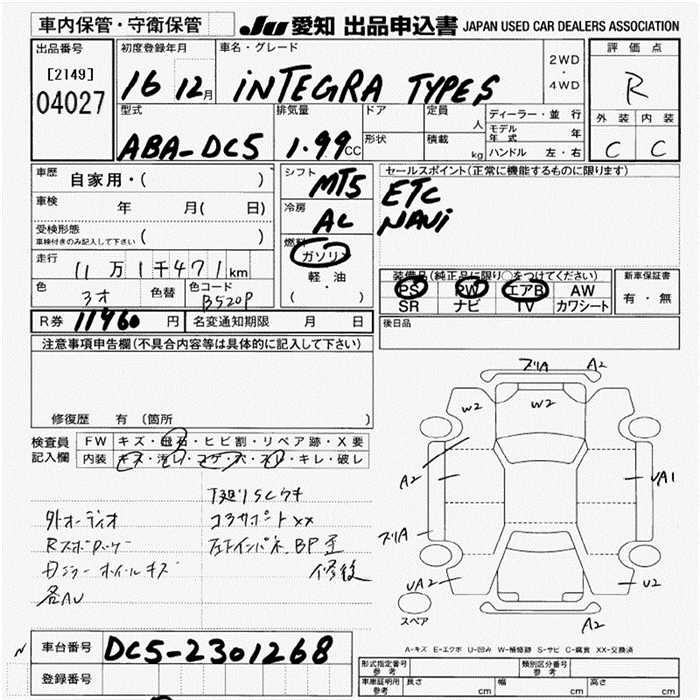 車内保管・守衛保管 JU 愛知 出品申込書 JAPAN USED CAR DEALERS ASSOCIATION
出品番号 初度登録年月 車名・グレード 2WD・4WD 評価点
[2149] 04027 16 12月 iNTEGRA TYPES R
型式 排気量 ドア 定員 人 ディーラー・並行 外装 内装
ABA-DC5 1.99CC 形状 積載 kg モデル年式 年 C C
ハンドル 左・右
車歴 自家用・( ) シフト MT5 セールスポイント(正常に機能するものに限ります)
車検 年 月( 日) 冷房 AC ETC
NAVi
受検形態 車検付きのみ記入して下さい ( ) 燃料 ガソリン
走行 11万1千471km 軽・油
色 色替 色コード B520P ( ・ )
装備品(純正品に限り○をつけてください) 新車保証書
PS PW エアB AW 有・無
SR ナビ TV カワシート
R券 11960円 名変通知期限 月 日 後日品
注意事項申告欄(不具合内容等は具体的に記入して下さい)
修復歴 有 (箇所 )
検査員記入欄 FW キズ・飛石・ヒビ割・リペア跡・X要
内装 キズ・汚レ・コゲ・穴・スレ・キレ・破レ
外オーディオ コアサポートXX
ホイールキズ 修後
A2
W2 W2
A2 UA1
UA2 U2
スペア A2
A-キズ E-エクボ U-凹み W-補修跡 S-サビ C-腐食 XX-交換済
車台番号 DC5-2301268
登録番号
形式指定番号 参考 類別区分番号 参考
車庫証明用 参考 長さ cm 幅 cm 高さ cm